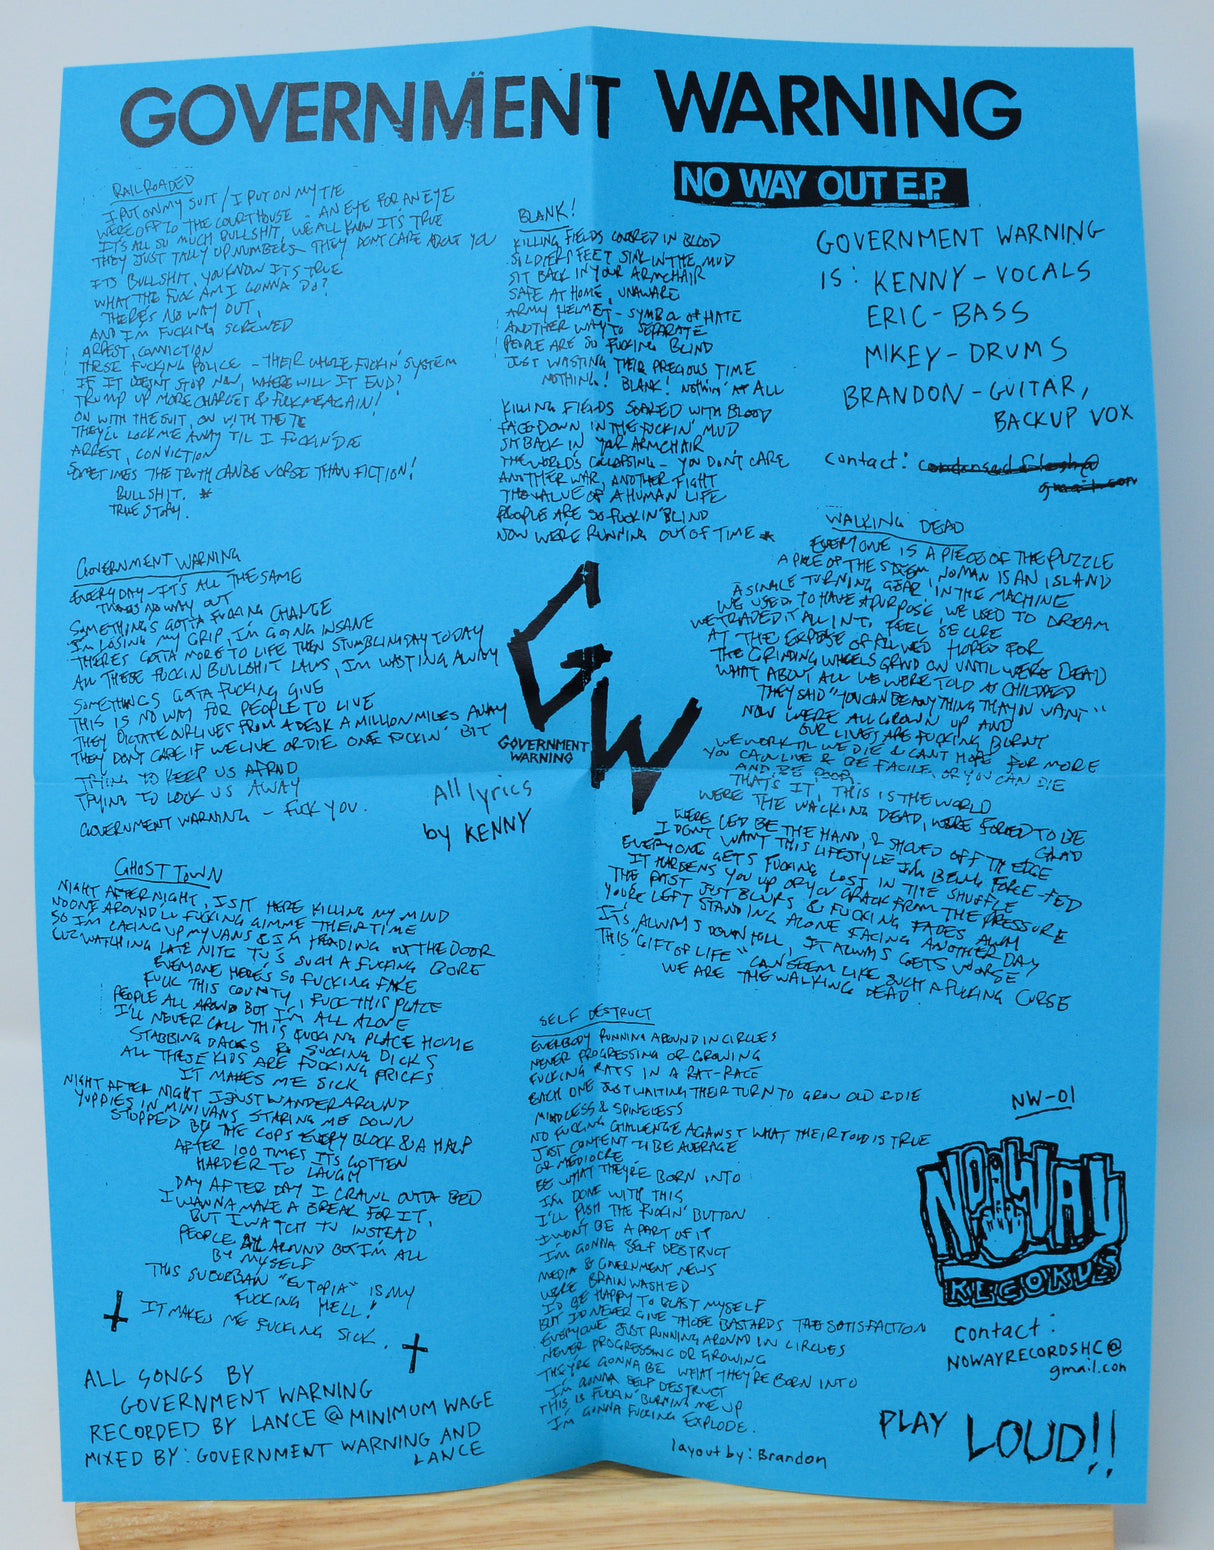 GOVERNMENT WARNING
NO WAY OUT E.P.
RAILROADED
I PUT ON MY SUIT / I PUT ON MY TIE
WERE OFF TO THE COURTHOUSE - AN EYE FOR AN EYE
IT'S ALL SO MUCH BULLSHIT, WE ALL KNOW ITS TRUE
THEY JUST TALLY UP NUMBERS - THEY DON'T CARE ABOUT YOU
ITS BULLSHIT, YOU KNOW ITS TRUE
WHAT THE FUCK AM I GONNA DO?
THERE'S NO WAY OUT,
AND I'M FUCKING SCREWED
ARREST, CONVICTION
THESE FUCKING POLICE - THEIR WHOLE FUCKIN' SYSTEM
IF IT DOESNT STOP NOW, WHERE WILL IT END?
TRUMP UP MORE CHARGES & FUCK ME AGAIN!
ON WITH THE SUIT, ON WITH THE TIE
THEY'LL LOCK ME AWAY 'TIL I FUCKIN' DIE
ARREST, CONVICTION
SOMETIMES THE TRUTH CAN BE WORSE THAN FICTION!
BULLSHIT. *
TRUE STORY.
BLANK!
KILLING FIELDS COVERED IN BLOOD
SOLDIERS FEET SINK IN THE MUD
SIT BACK IN YOUR ARMCHAIR
SAFE AT HOME, UNAWARE
ARMY HELMET - SYMBOL OF HATE
ANOTHER WAY TO SEPARATE
PEOPLE ARE SO FUCKING BLIND
JUST WASTING THEIR PRECIOUS TIME
NOTHING! BLANK! NOTHIN' AT ALL
KILLING FIELDS SOAKED WITH BLOOD
FACE DOWN IN THE FUCKIN' MUD
SIT BACK IN YOUR ARMCHAIR
THE WORLD'S COLLAPSING - YOU DON'T CARE
ANOTHER WAR, ANOTHER FIGHT
THE VALUE OF A HUMAN LIFE
PEOPLE ARE SO FUCKIN' BLIND
NOW WE'RE RUNNING OUT OF TIME *
GOVERNMENT WARNING
IS: KENNY - VOCALS
ERIC - BASS
MIKEY - DRUMS
BRANDON - GUITAR,
BACKUP VOX
contact: condensedflesh@
gmail.com
GOVERNMENT WARNING
EVERYDAY - IT'S ALL THE SAME
THERES NO WAY OUT
SOMETHING'S GOTTA FUCKING CHANGE
I'M LOSING MY GRIP, I'M GOING INSANE
THERE'S GOTTA MORE TO LIFE THEN STUMBLIN DAY TO DAY
ALL THESE FUCKIN BULLSHIT LAWS, I'M WASTING AWAY
SOMETHINGS GOTTA FUCKING GIVE
THIS IS NO WAY FOR PEOPLE TO LIVE
THEY DICTATE OUR LIVES FROM A DESK A MILLION MILES AWAY
THEY DON'T CARE IF WE LIVE OR DIE ONE FUCKIN' BIT
TRYING TO KEEP US AFRAID
TRYING TO LOCK US AWAY
GOVERNMENT WARNING - FUCK YOU.
All lyrics
by KENNY
GW
GOVERNMENT
WARNING
WALKING DEAD
EVERYONE IS A PIECE OF THE PUZZLE
A PIECE OF THE SYSTEM, NO MAN IS AN ISLAND
A SINGLE TURNING GEAR IN THE MACHINE
WE USED TO HAVE A PURPOSE, WE USED TO DREAM
WE TRADED IT ALL IN TO FEEL SECURE
AT THE EXPENSE OF ALL WE'D HOPED FOR
THE GRINDING WHEELS GRIND ON UNTIL WE'RE DEAD
WHAT ABOUT ALL WE WERE TOLD AS CHILDREN
THEY SAID "YOU CAN BE ANYTHING THAT YOU WANT"
NOW WE'RE ALL GROWN UP AND
OUR LIVES ARE FUCKING BURNT
WE WORK TIL WE DIE & CANT HOPE FOR MORE
YOU CAN LIVE & BE FACILE, OR YOU CAN DIE
AND BE POOR.
THATS IT, THIS IS THE WORLD
WERE THE WALKING DEAD, WERE FORCED TO BE
GLAD
WERE LED BE THE HAND, & SHOVED OFF THE EDGE
I DON'T WANT THIS LIFESTYLE I'M BEING FORCE-FED
EVERYONE GETS FUCKING LOST IN THE SHUFFLE
IT HARDENS YOU UP OR YOU CRACK FROM THE PRESSURE
THE PAST JUST BLURS & FUCKING FADES AWAY
YOU'RE LEFT STANDING ALONE FACING ANOTHER DAY
IT'S ALWAYS DOWNHILL, IT ALWAYS GETS WORSE
THIS "GIFT OF LIFE" CAN SEEM LIKE SUCH A FUCKING CURSE
WE ARE THE WALKING DEAD.
GHOST TOWN
NIGHT AFTER NIGHT, I SIT HERE KILLING MY MIND
NO ONE AROUND'LL FUCKING GIMME THEIR TIME
SO I'M LACING UP MY VANS & I'M HEADING OUT THE DOOR
CUZ WATCHING LATE NITE TV'S SUCH A FUCKING BORE
EVERYONE HERE'S SO FUCKING FAKE
FUCK THIS COUNTY, FUCK THIS PLACE
PEOPLE ALL AROUND BUT I'M ALL ALONE
I'LL NEVER CALL THIS FUCKING PLACE HOME
STABBING BACKS & SUCKING DICKS
ALL THESE KIDS ARE FUCKING PRICKS
IT MAKES ME SICK
NIGHT AFTER NIGHT I JUST WANDER AROUND
YUPPIES IN MINIVANS STARING ME DOWN
STOPPED BY THE COPS EVERY BLOCK & A HALF
AFTER 100 TIMES ITS GOTTEN
HARDER TO LAUGH
DAY AFTER DAY I CRAWL OUTTA BED
I WANNA MAKE A BREAK FOR IT,
BUT I WATCH TV INSTEAD
PEOPLE ALL AROUND BUT I'M ALL
BY MYSELF
THIS SUBURBAN "EUTOPIA" IS MY
FUCKING HELL!
IT MAKES ME FUCKING SICK.
SELF DESTRUCT
EVERYBODY RUNNING AROUND IN CIRCLES
NEVER PROGRESSING OR GROWING
FUCKING RATS IN A RAT-RACE
EACH ONE JUST WAITING THEIR TURN TO GROW OLD & DIE
MINDLESS & SPINELESS
NO FUCKING CHALLENGE AGAINST WHAT THEIR TOLD IS TRUE
JUST CONTENT TO BE AVERAGE
OR MEDIOCRE
BE WHAT THEY'RE BORN INTO
I'M DONE WITH THIS
I'LL PUSH THE FUCKIN' BUTTON
I WONT BE A PART OF IT
I'M GONNA SELF DESTRUCT
MEDIA & GOVERNMENT NEWS
WERE BRAINWASHED
I'D BE HAPPY TO BLAST MYSELF
BUT I'D NEVER GIVE THOSE BASTARDS THE SATISFACTION
EVERYONE JUST RUNNING AROUND IN CIRCLES
NEVER PROGRESSING OR GROWING
THEY'RE GONNA BE WHAT THEY'RE BORN INTO
I'M GONNA SELF DESTRUCT
THIS IS FUCKIN' BURNING ME UP
I'M GONNA FUCKING EXPLODE.
NW-01
NO WAY
RECORDS
Contact:
NOWAYRECORDSHC@
gmail.com
ALL SONGS BY
GOVERNMENT WARNING
RECORDED BY LANCE @ MINIMUM WAGE
MIXED BY: GOVERNMENT WARNING AND
LANCE
layout by: Brandon
PLAY LOUD!!